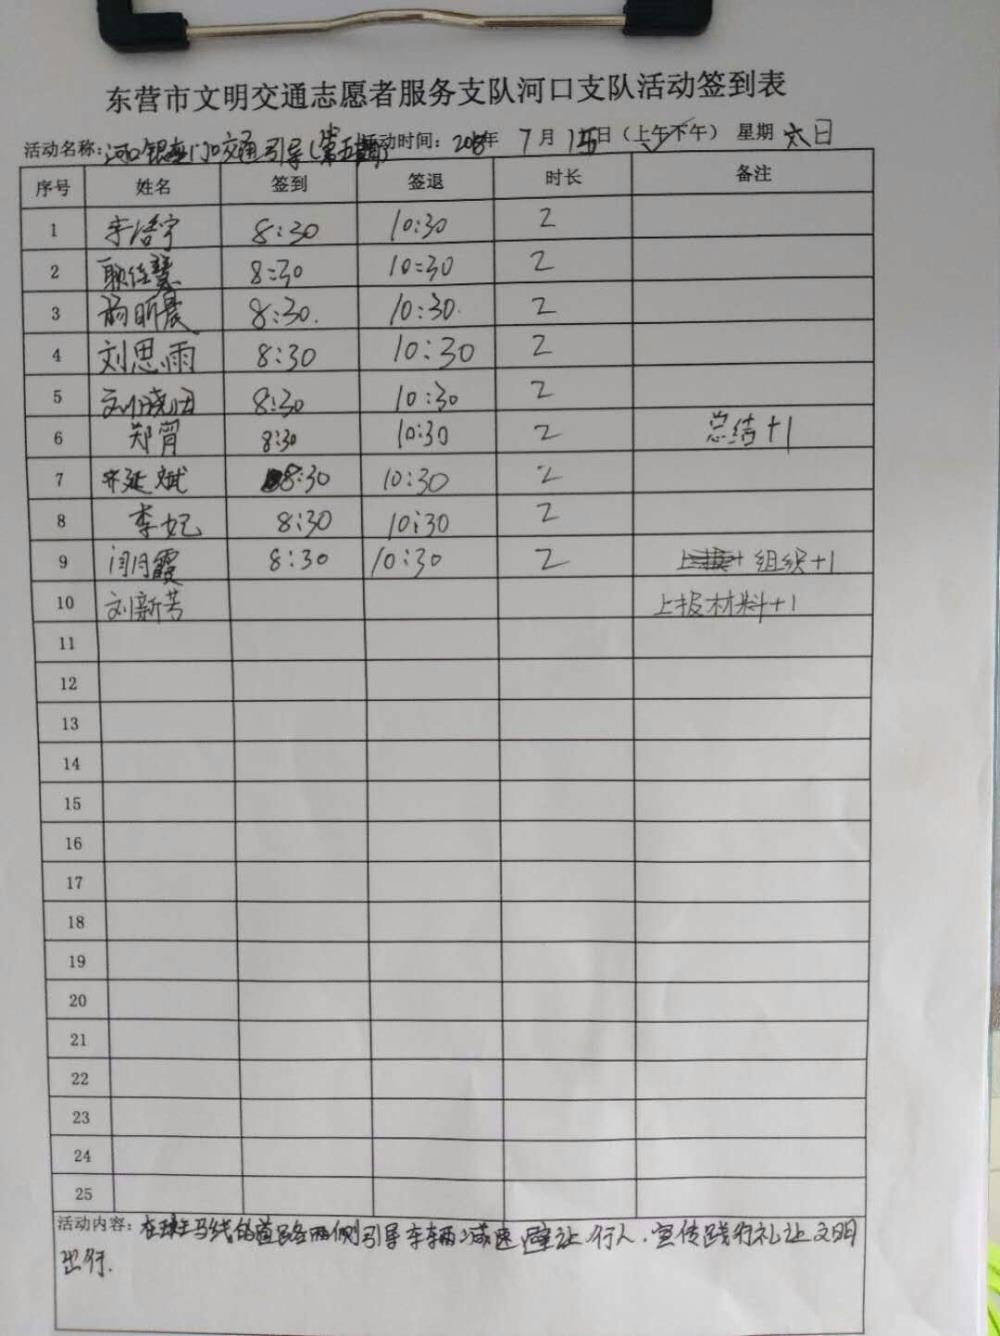 东营市文明交通志愿者服务支队河口支队活动签到表
活动名称：河口银座门口交通引导（第五期） 活动时间：2018年 7月 15日（上午下午） 星期 日
序号 姓名 签到 签退 时长 备注
1 李浩宇 8:30 10:30 2
2 耿佳慧 8:30 10:30 2
3 杨昕晨 8:30. 10:30. 2
4 刘思雨 8:30 10:30 2
5 8:30 10:30 2
6 郑霄 8:30 10:30 2 总结+1
7 延斌 8:30 10:30 2
8 李妃 8:30 10:30 2
9 闫月霞 8:30 10:30 2 组织+1
10 刘新芳 上报材料+1
11
12
13
14
15
16
17
18
19
20
21
22
23
24
25
活动内容：在斑马线的道路两侧引导车辆减速，避让行人，宣传践行礼让文明
出行.